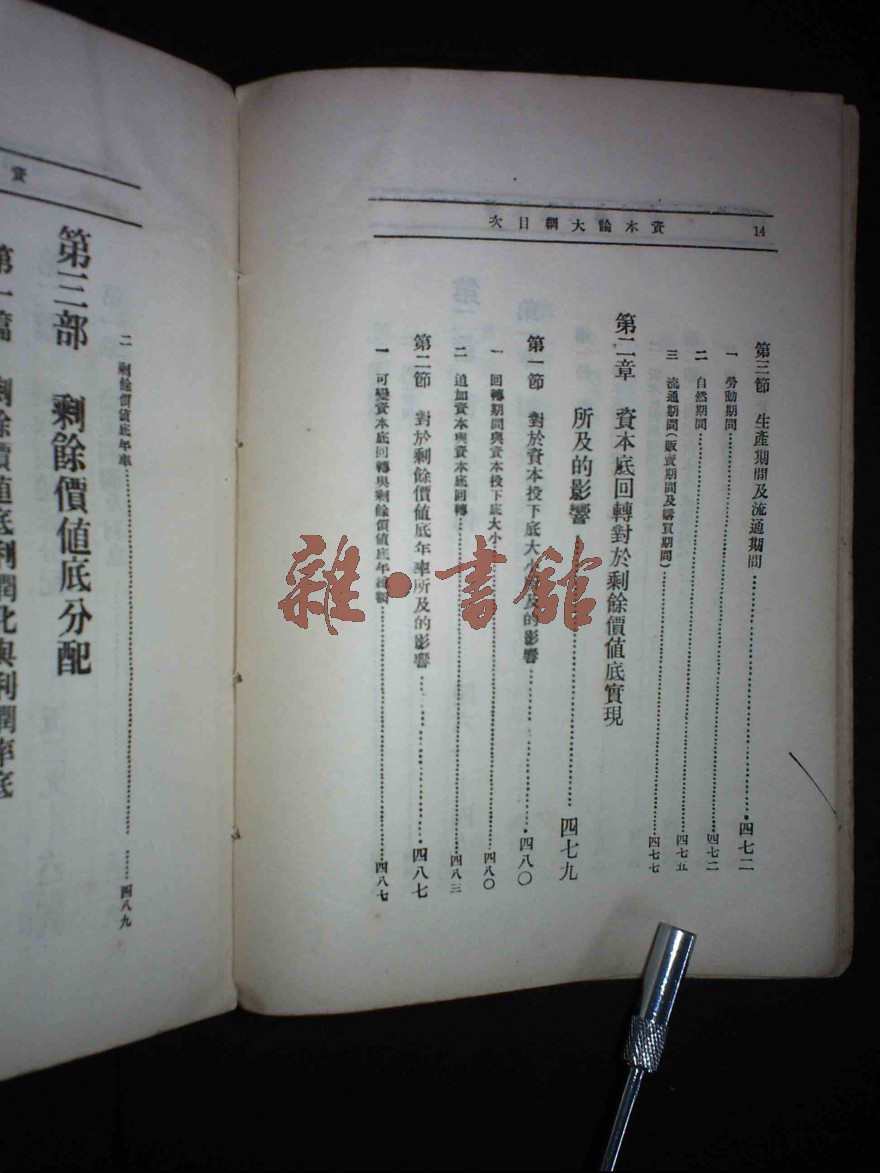 14
資本論大綱目次
第三節 生產期間及流通期間………四七二
一 勞動期間………四七二
二 自然期間………四七五
三 流通期間(販賣期間及購買期間)………四七七
第二章 資本底回轉對於剩餘價值底實現
所及的影響………四七九
第一節 對於資本投下底大小所及的影響………四八〇
一 回轉期間與資本投下底大小………四八〇
二 追加資本與資本底回轉………四八三
第二節 對於剩餘價值底年率所及的影響………四八七
一 可變資本底回轉與剩餘價值底年………四八七
資
二 剩餘價值底年率………四八九
第三部 剩餘價值底分配
第一篇 剩餘價值底利潤化與利潤率底
雜·書館